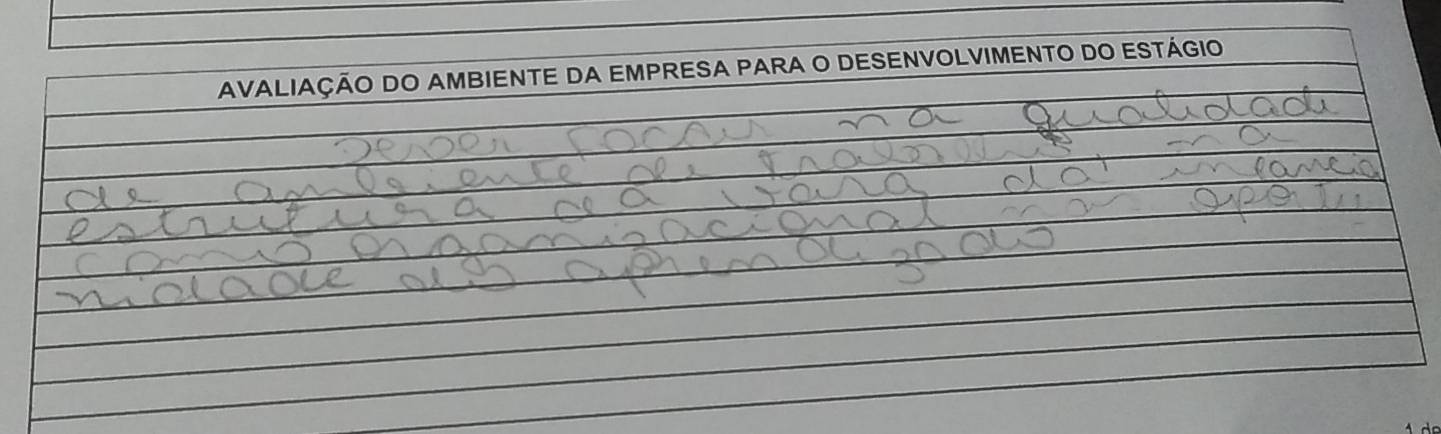 AVALIAÇÃO DO AMBIENTE DA EMPRESA PARA O DESENVOLVIMENTO DO ESTÁGIO
Dever focar na qualidade
de ambiente de trabalho, na
estrutura da vara da infancia
como organizacional nan oportu
nidade dos aprendizado
1 de